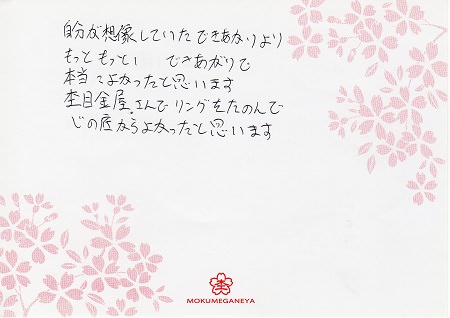 自分が想像していたできあがりより
もっともっとい できあがりで
本当によかったと思います
杢目金屋さんでリングをたのんで
心の底からよかったと思います
杢
MOKUMEGANEYA